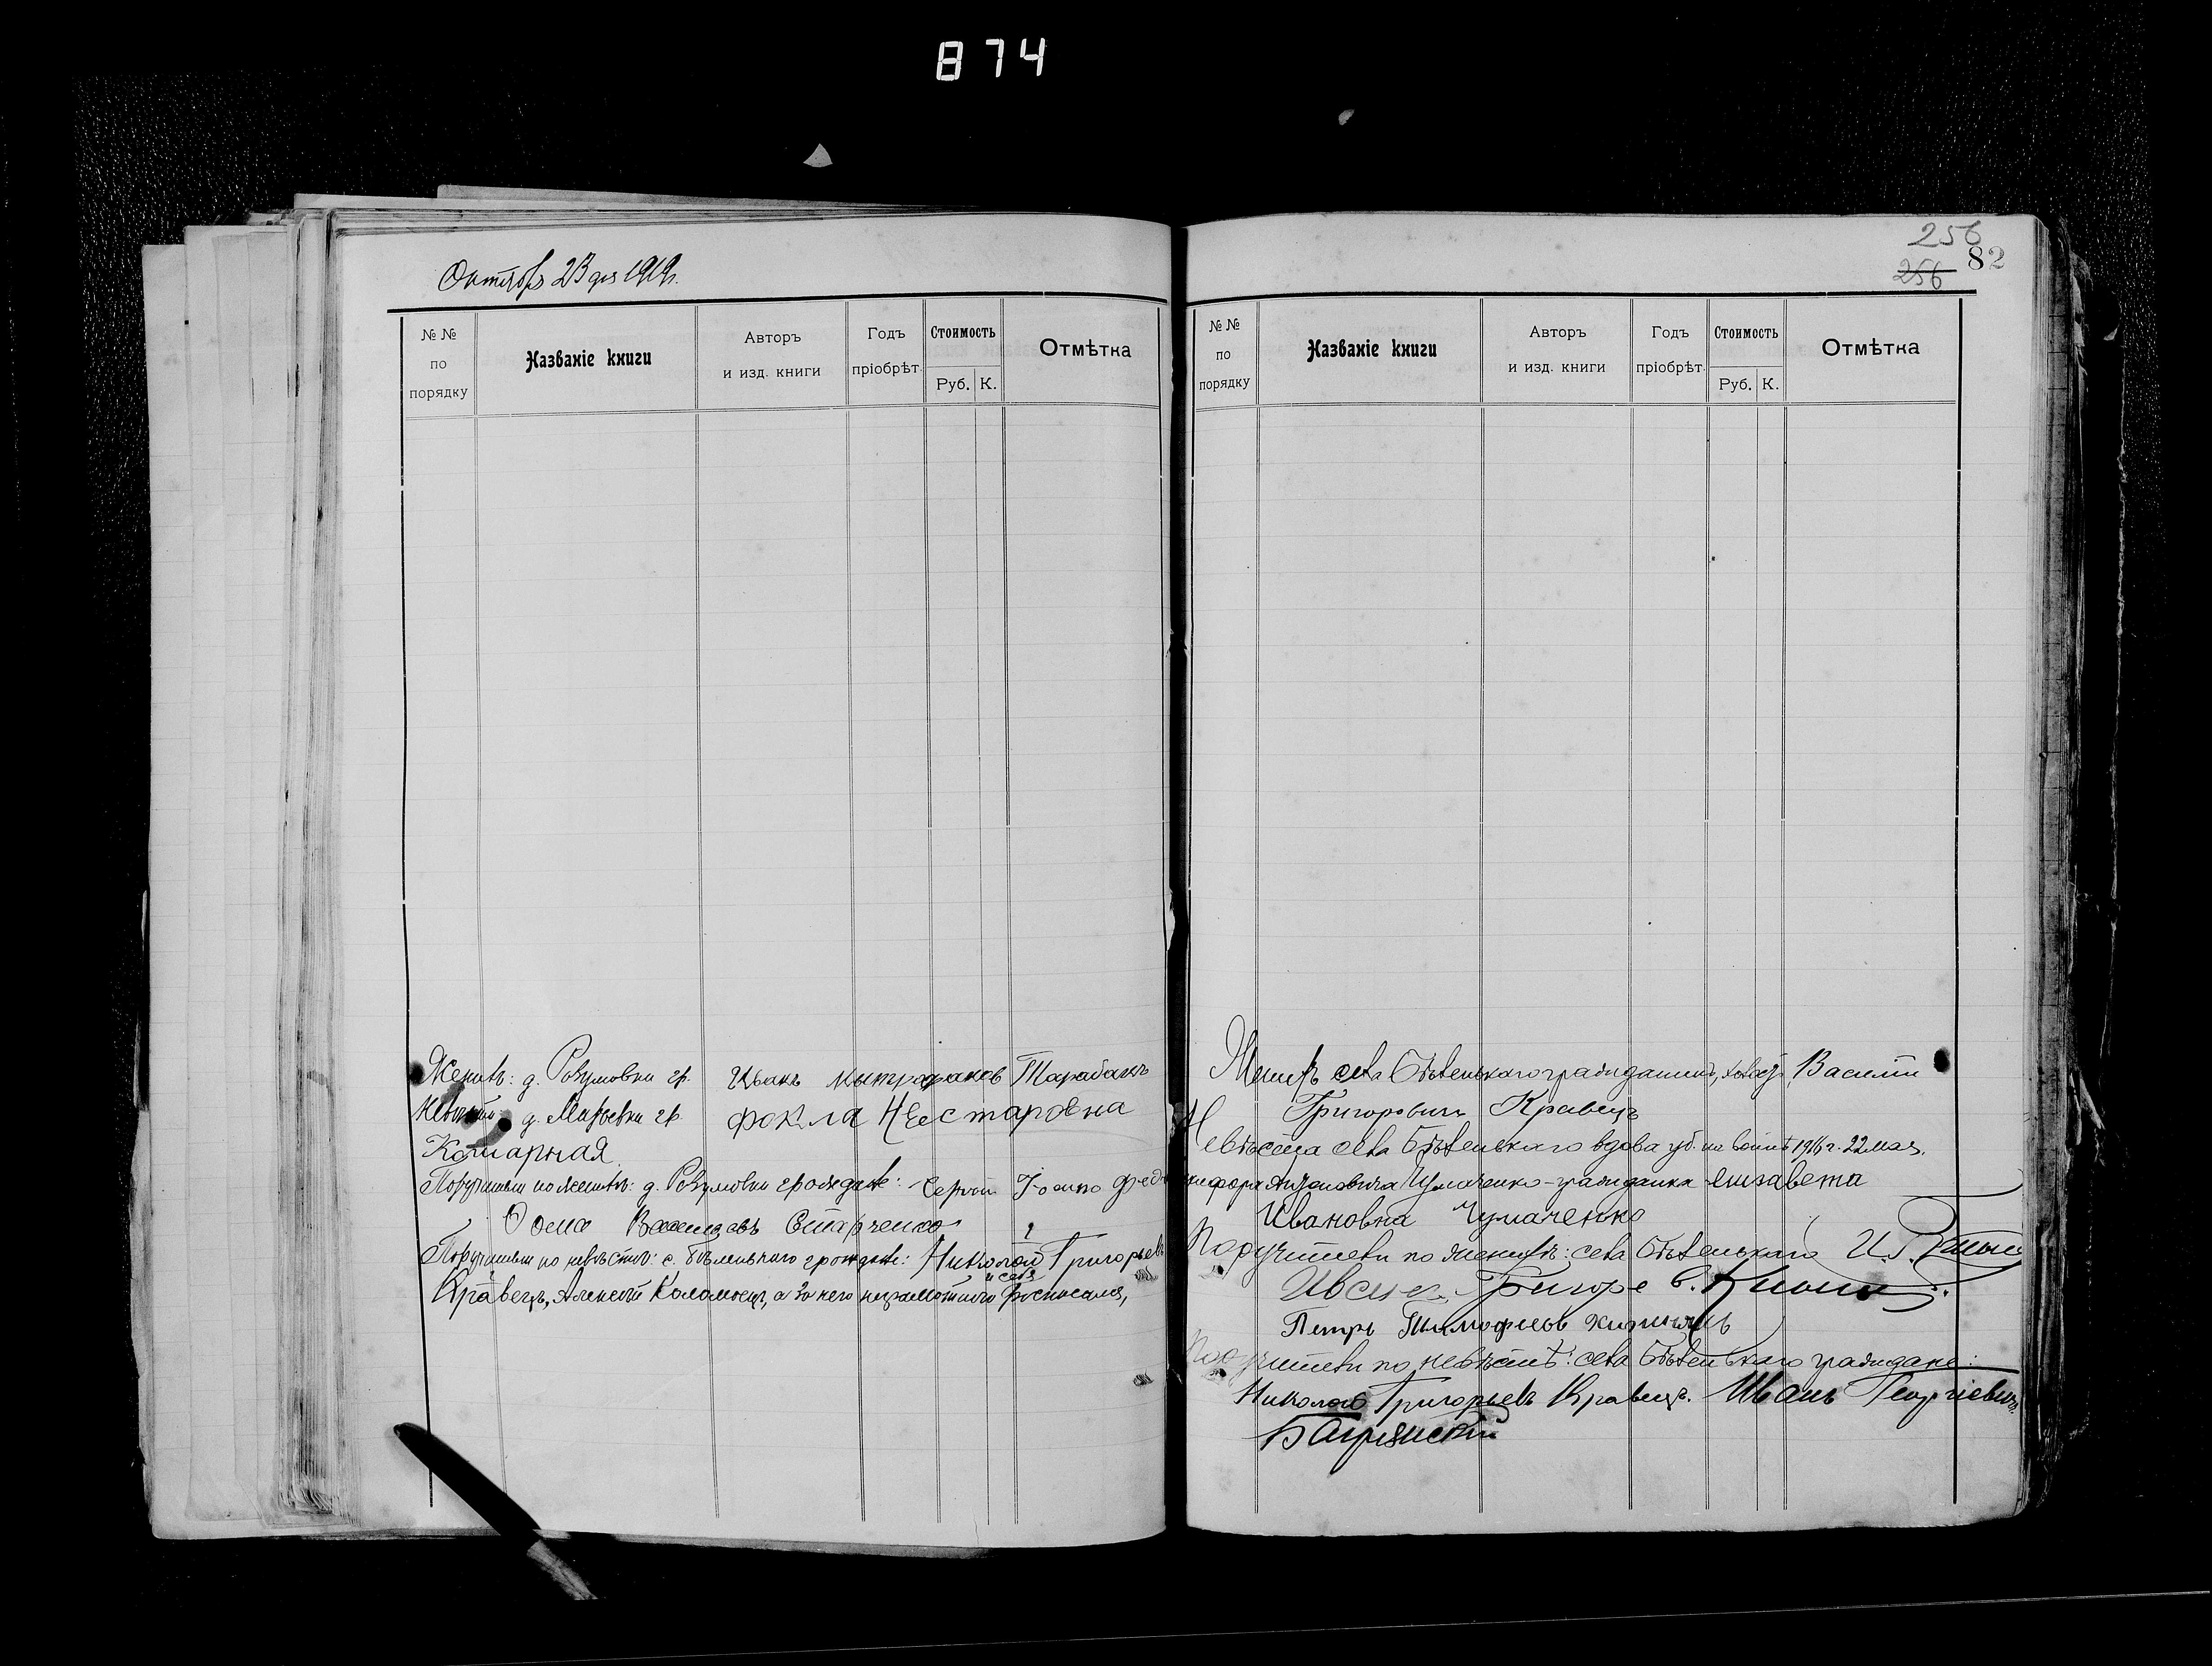 874
Октября 23 дня 1919 г.
№ № по порядку
Названіе книги
Авторъ и изд. книги
Годъ пріобрѣт.
Стоимость
Руб. К.
Отмѣтка
Женихъ: д. Розумовки гр. Иванъ Тарабанъ
д. Марьевки гр. Фокла Нестаровна
Комарная
Поручители по женихѣ: д. Розумовки граждане:
Фома Старченко
Поручители по невѣстѣ: с. Бѣленькаго граждане: Николай Григорьевъ
Кравецъ, Алексѣй Коломоецъ, а за него неграмотного и себя росписался,
256
256 82
№ № по порядку
Названіе книги
Авторъ и изд. книги
Годъ пріобрѣт.
Стоимость
Руб. К.
Отмѣтка
Женихъ села Бѣленькаго гражданинъ, Василій
Григоровичъ Кравецъ
Невѣста села Бѣленькаго вдова уб. на войнѣ 1916 г. 22 мая.
Чумаченко - гражданка Елизавета
Ивановна Чумаченко
Поручители по женихѣ: села Бѣленькаго
Петръ Тимофеевъ
Поручители по невѣстѣ: села Бѣленькаго граждане:
Николай Григорьевъ Кравецъ. Иванъ Георгіевичъ